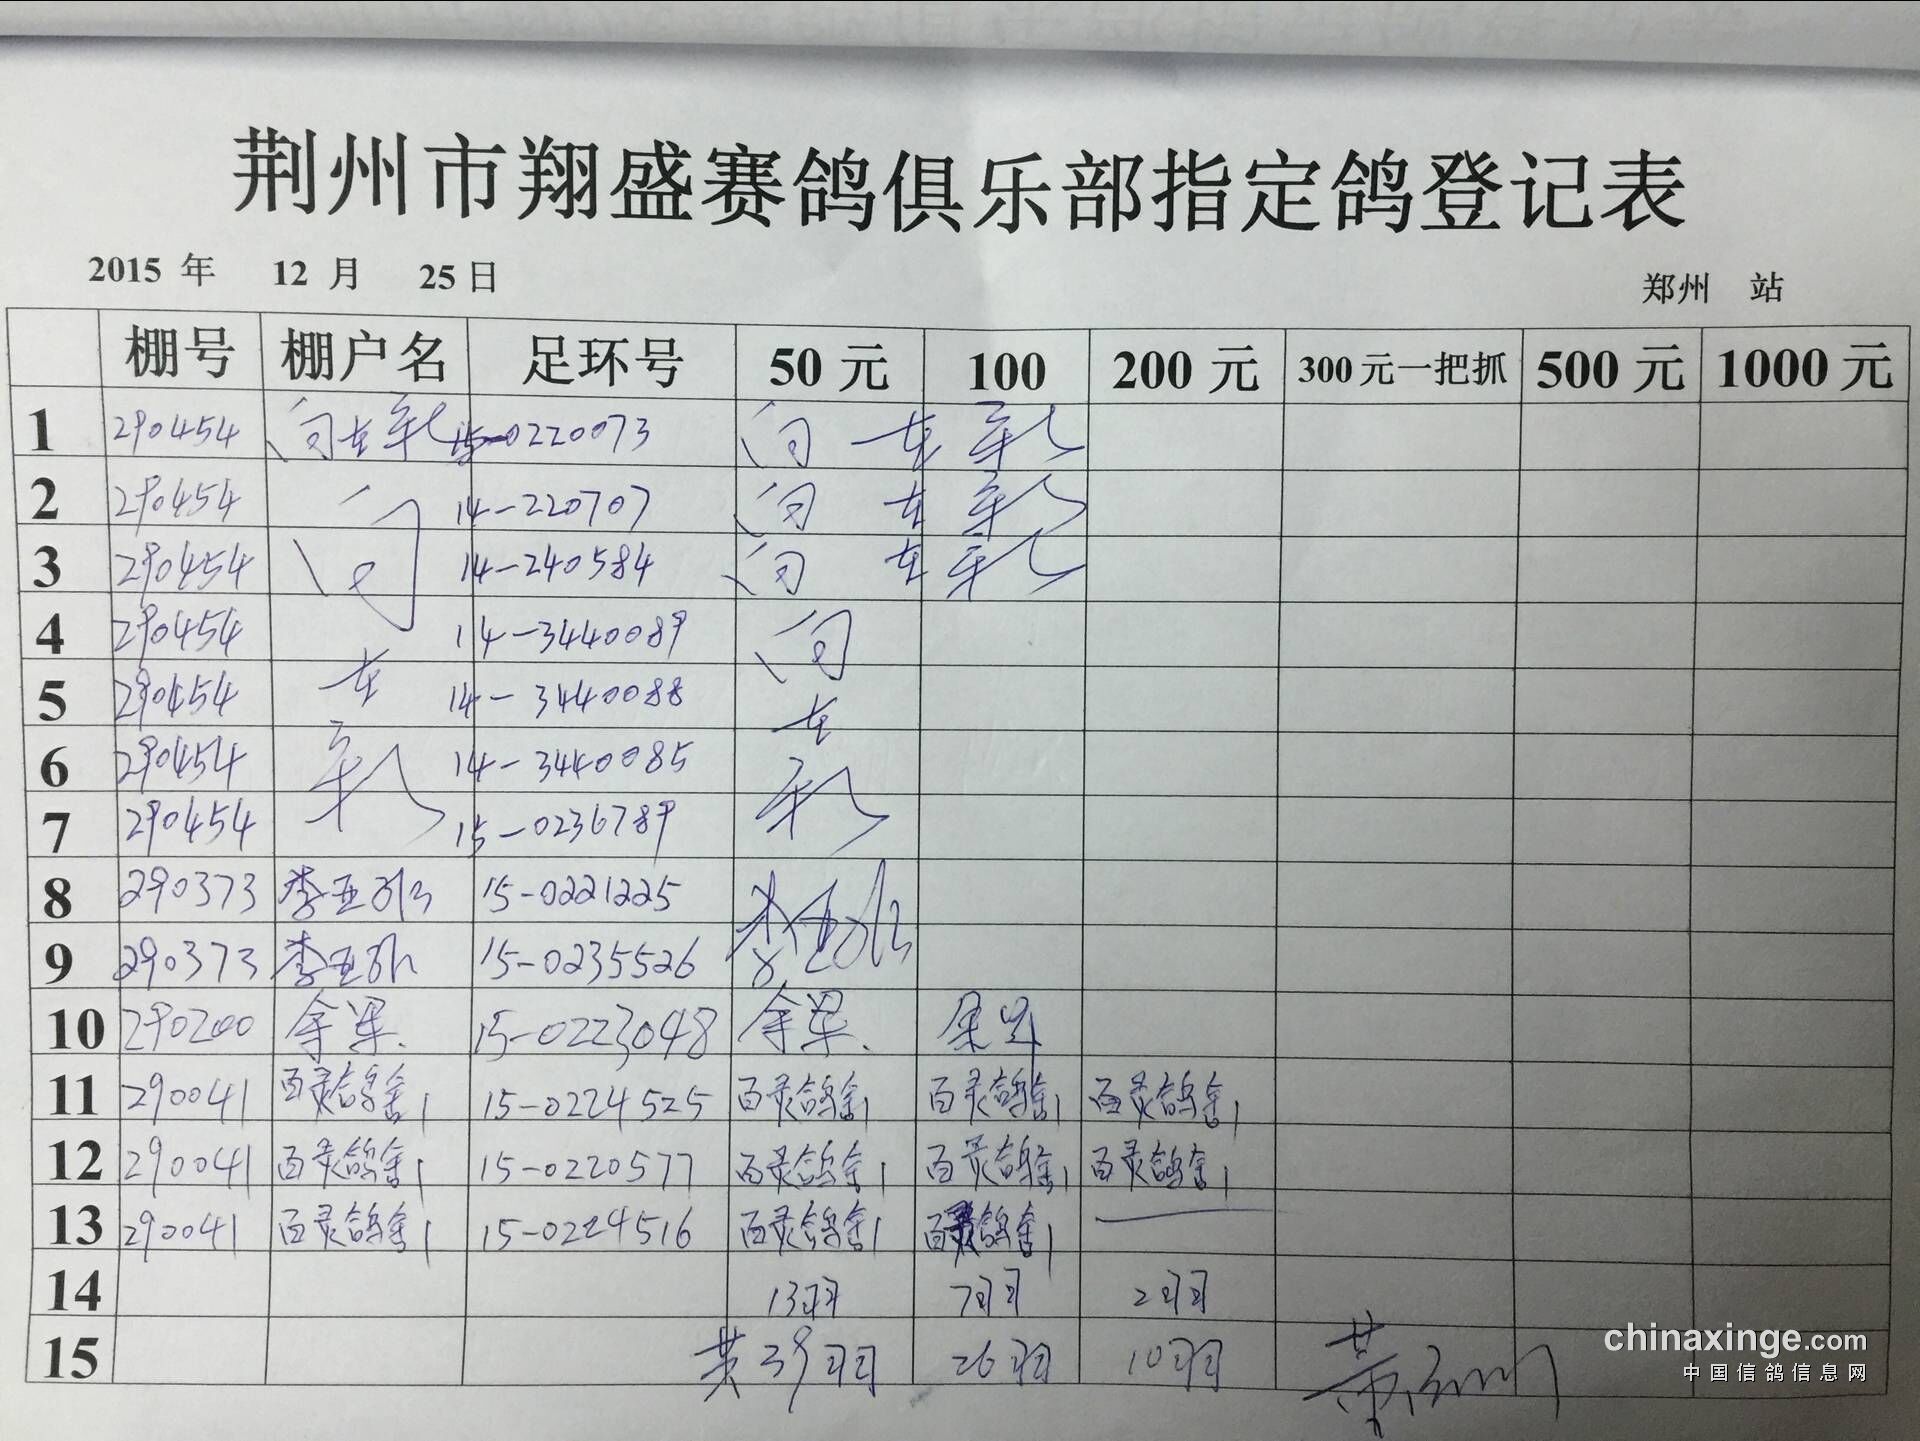 荆州市翔盛赛鸽俱乐部指定鸽登记表
2015 年 12 月 25 日 郑州 站
棚号 棚户名 足环号 50 元 100 200 元 300 元一把抓 500 元 1000 元
1 290454 15-0220073
2 290454 14-220707
3 290454 14-240584
4 290454 14-3440089
5 290454 14-3440088
6 290454 14-3440085
7 290454 15-0236789
8 290373 李亚 15-0221225
9 290373 李亚 15-0235526
10 290200 15-0223048
11 290041 百灵鸽舍1 15-0224525 百灵鸽舍1 百灵鸽舍1 百灵鸽舍1
12 290041 百灵鸽舍1 15-0220577 百灵鸽舍1 百灵鸽舍1 百灵鸽舍1
13 290041 百灵鸽舍1 15-0224516 百灵鸽舍1 百灵鸽舍1
14 13羽 7羽 2羽
15 共39羽 26羽 10羽
chinaxinge.com
中国信鸽信息网